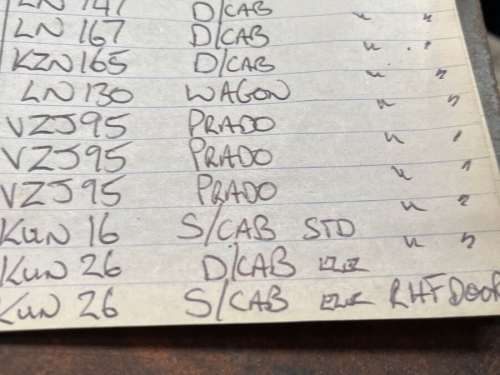 LN 147 D/CAB " "
LN 167 D/CAB " "
KZN 165 D/CAB " "
LN 130 WAGON " "
VZJ95 PRADO " "
VZJ95 PRADO " "
VZJ95 PRADO " "
KUN 16 S/CAB STD " "
KUN 26 D/CAB
KUN 26 S/CAB RHF DOOR